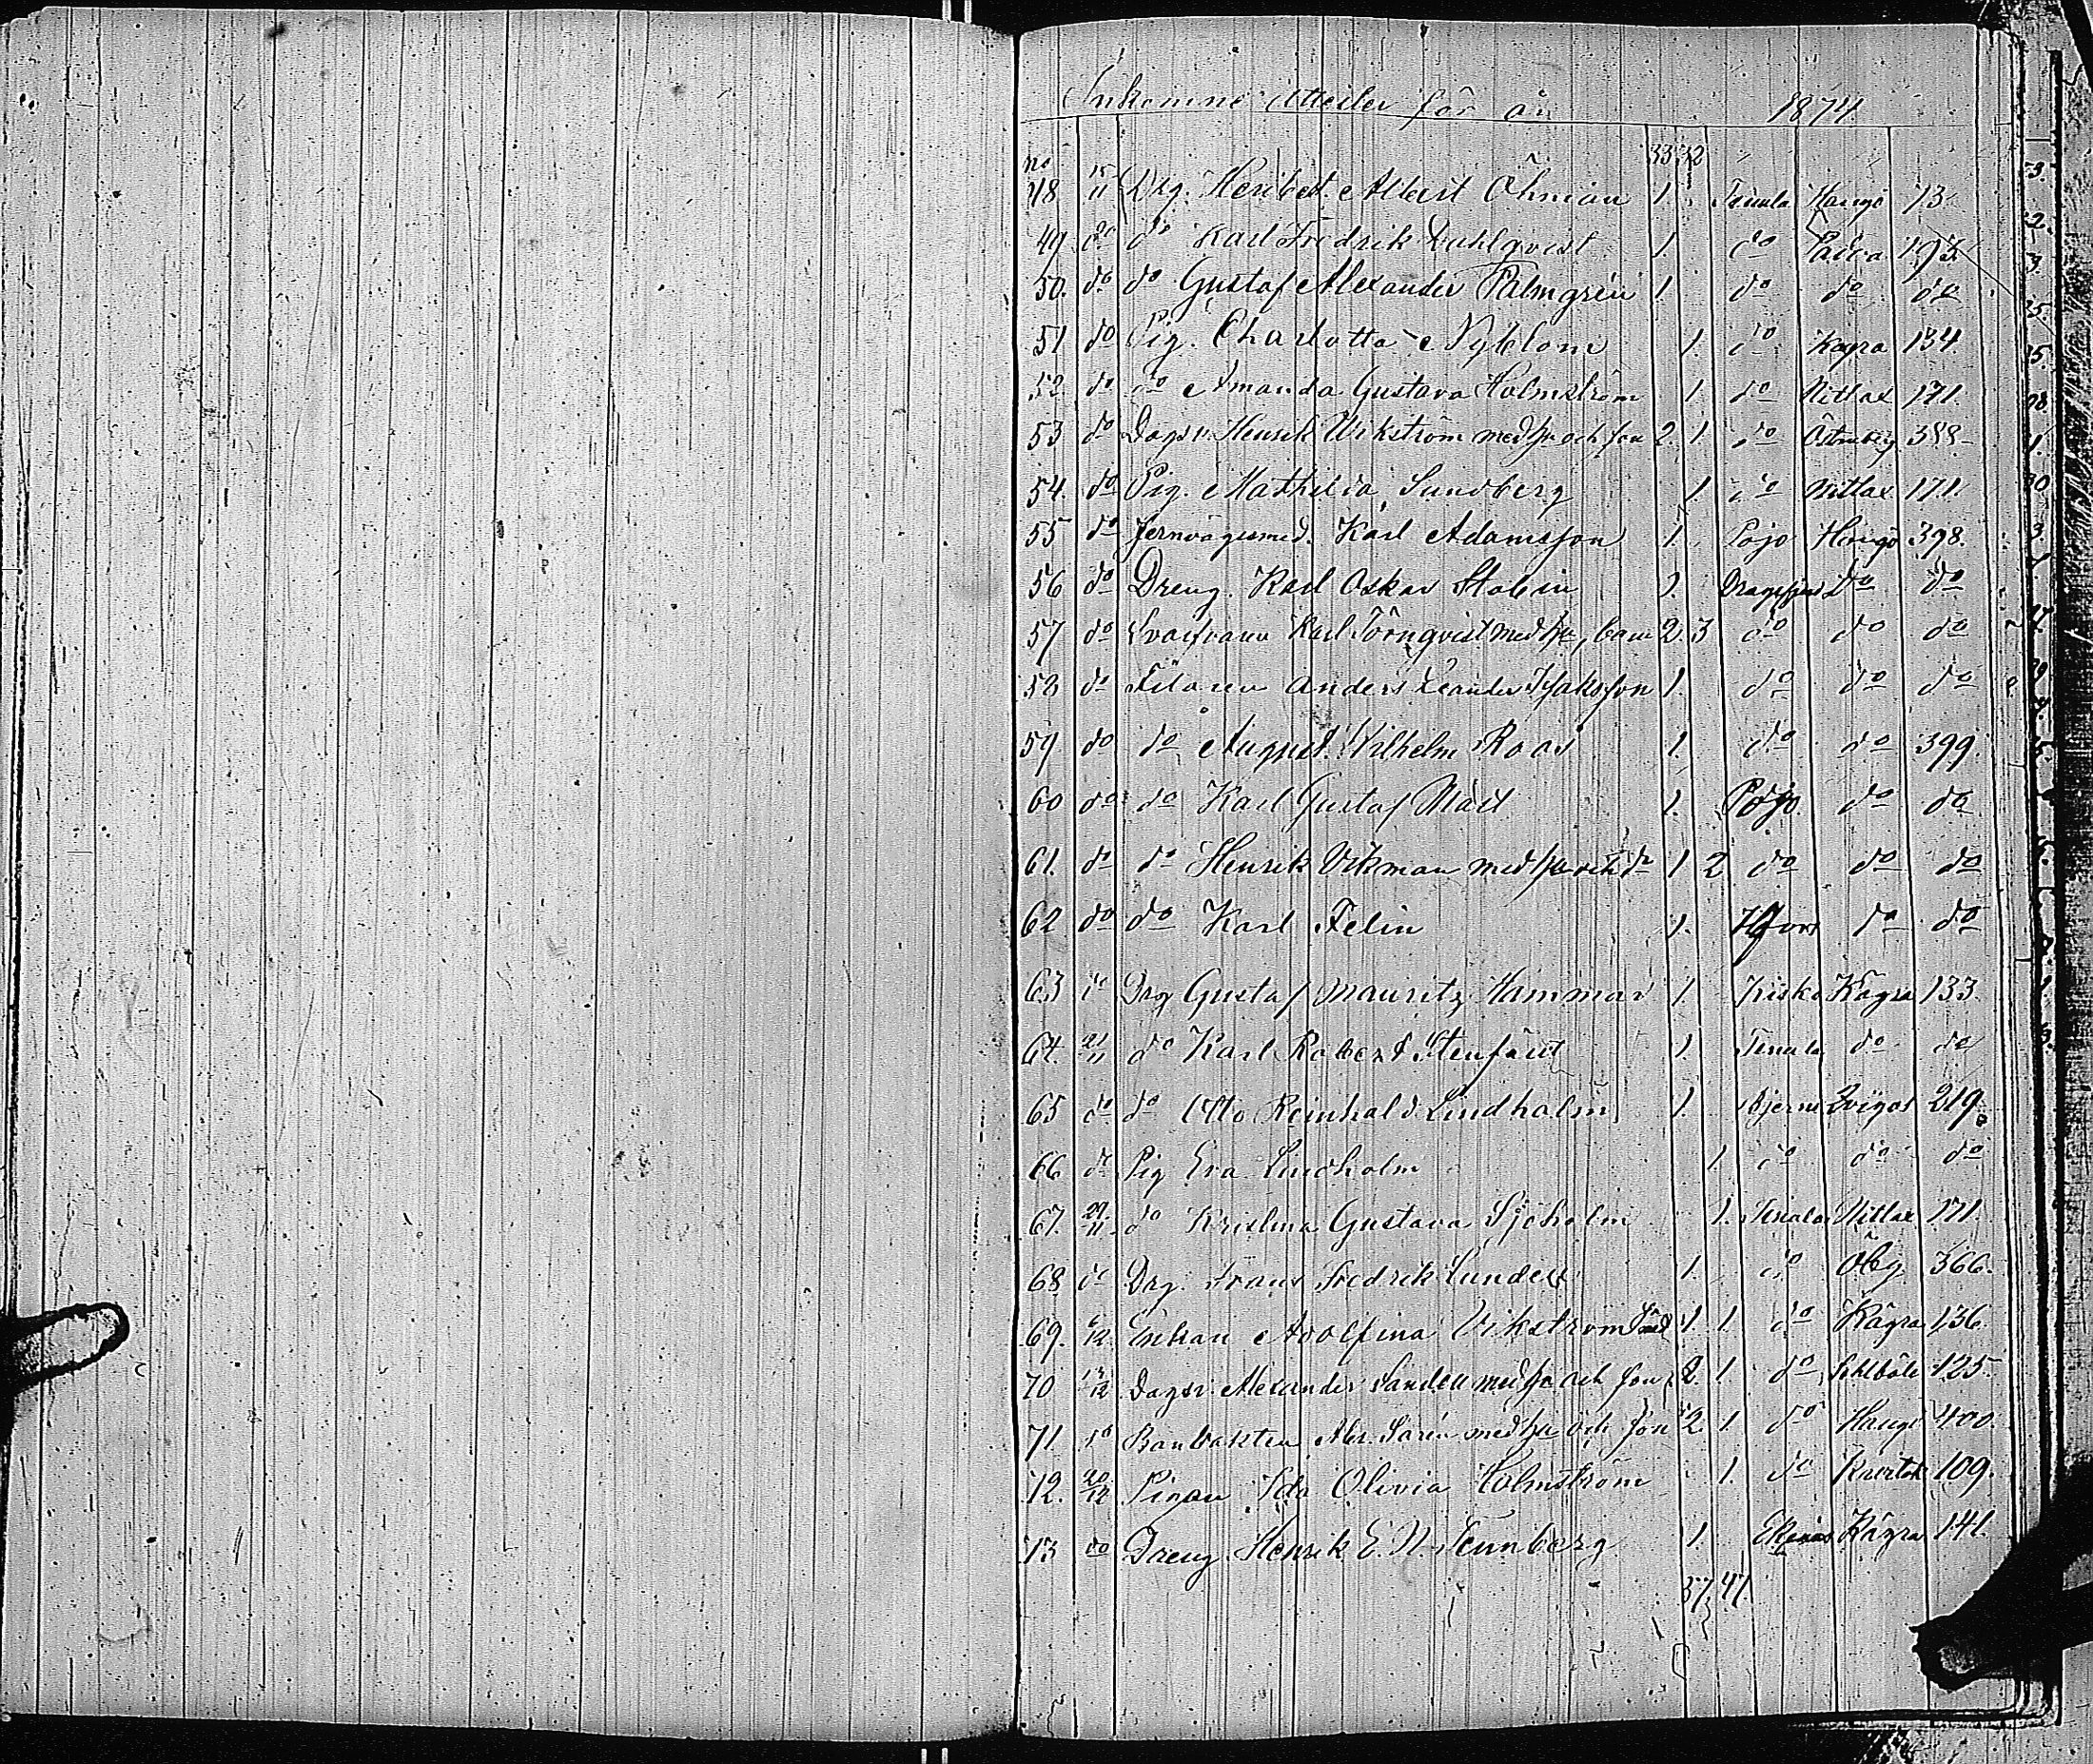 Inkomne Attester för år 1874
no 33 32
48 15/11 Drg. Heribert Albert Öhman 1. Tenala Hangö 13
49 do do Karl Fredrik Dahlqvist 1. do Padva 195
50. do do Gustaf Alexander Palmgren 1 do do do
51 do Pig. Charlotta Nyblom 1. do Kogra 134.
52. do do Amanda Gustava Holmström 1 do Nitlax 171.
53 do Dagsv. Henrik Wikström med hu och son 2. 1. do Österby 388
54. do Pig. Mathilda Sundberg 1 do Nitlax 171.
55 do Jernvägssmed. Karl Adamsson 1. Pojo Hangö 398.
56 do Dreng. Karl Oskar Stolin 1. Dragsfjerd do do
57 do Svarfvaren Karl Törnqvist med hu, barn 2. 3 do do do
58 do Filaren Anders Leander Isaksson 1. do do do
59 do do August Wilhelm Roos 1. do do 399
60 do do Karl Gustaf Mårt 1. Pojo. do do
61. do do Henrik Vikman med hu och dr 1 2 do do do
62 do do Karl Felin 1. Hfors do do
63 do Drg Gustaf Mauritz Hammar 1. Kisko Kågra 133.
64. 21/11 do Karl Robert Stenfäut 1. Tenala do do
65 do do Otto Reinhald Lindholm 1. Bjerno Tvigos 219.
66 do Pig Eva Lindholm 1. do do do
67. 29/11 do Kristina Gustava Sjöholm 1. Tenala Nitlax 171.
68 do Drg. Frans Fredrik Sundell 1. do Öby 366.
69. 6/12 Enkan Adolfina Vikström 1. 1. do Kågra 136.
70 13/12 Dagsv. Alexander Sandell med hu och son 2. 1 do 125
71 do Banvakten Alex. Sarén med hu och son 2. 1. do Hangö 400.
72. 20/12 Pigan Ida Olivia Holmström 1. do 109.
73 do Dreng. Henrik E. N. Tennberg 1. Ekenäs Kågra 141.
57, 47.